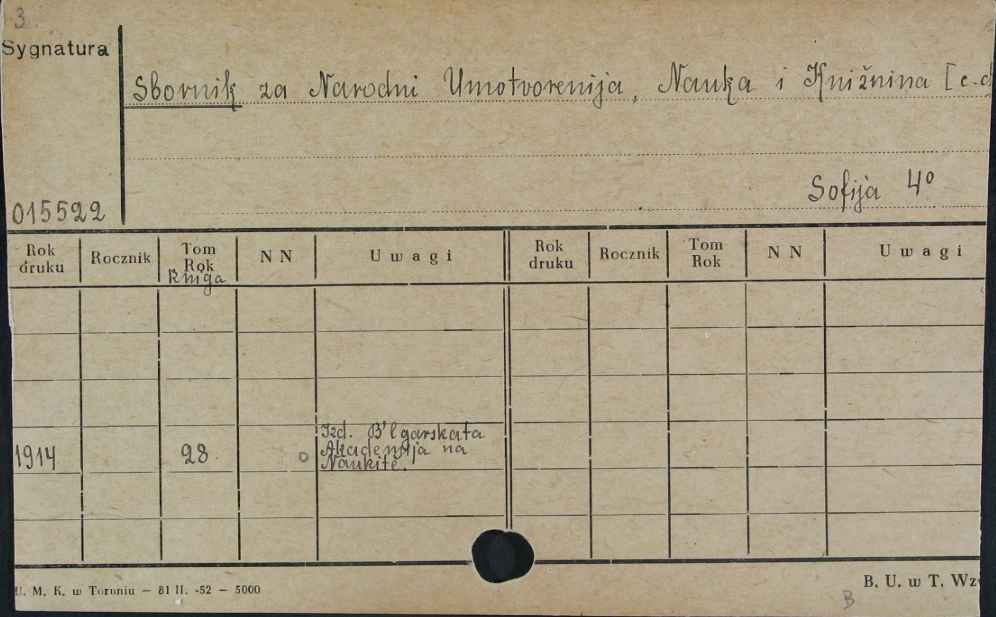 3
Sygnatura
Sbornik za Narodni Umotvorenija, Nauka i Knižnina [c.d
Sofija 4°
015522
Rok druku Rocznik Tom Rok Kniga N N Uwagi Rok druku Rocznik Tom Rok N N Uwagi
Izd. B'lgarskata
1914 28 o Akademija na
Naukite.
U. M. K. w Toruniu – 81 II. -52 – 5000
B. U. w T. Wz
B